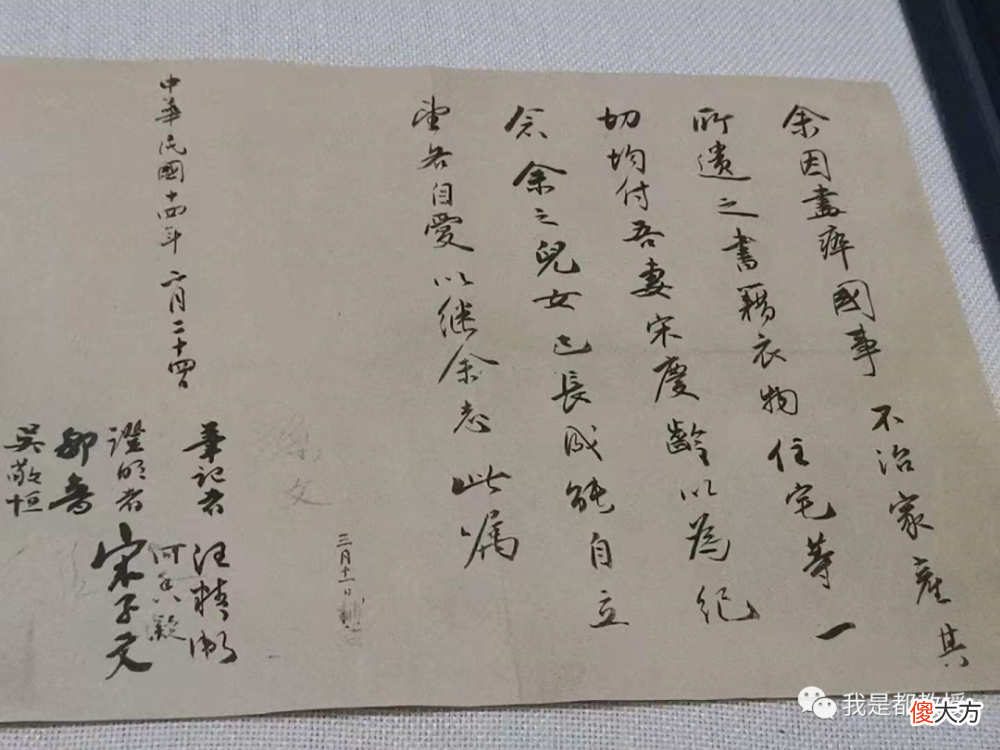 余因盡瘁國事不治家產其
所遺之書籍衣物住宅等一
切均付吾妻宋慶齡以為紀
念余之兒女已長成能自立
望各自愛以继余志此嘱
三月十一日補
孫文
中華民國十四年二月二十四日
筆記者 汪精衛
何香凝
證明者 宋子文
鄒魯
吳敬恒
我是都教授
傻大方